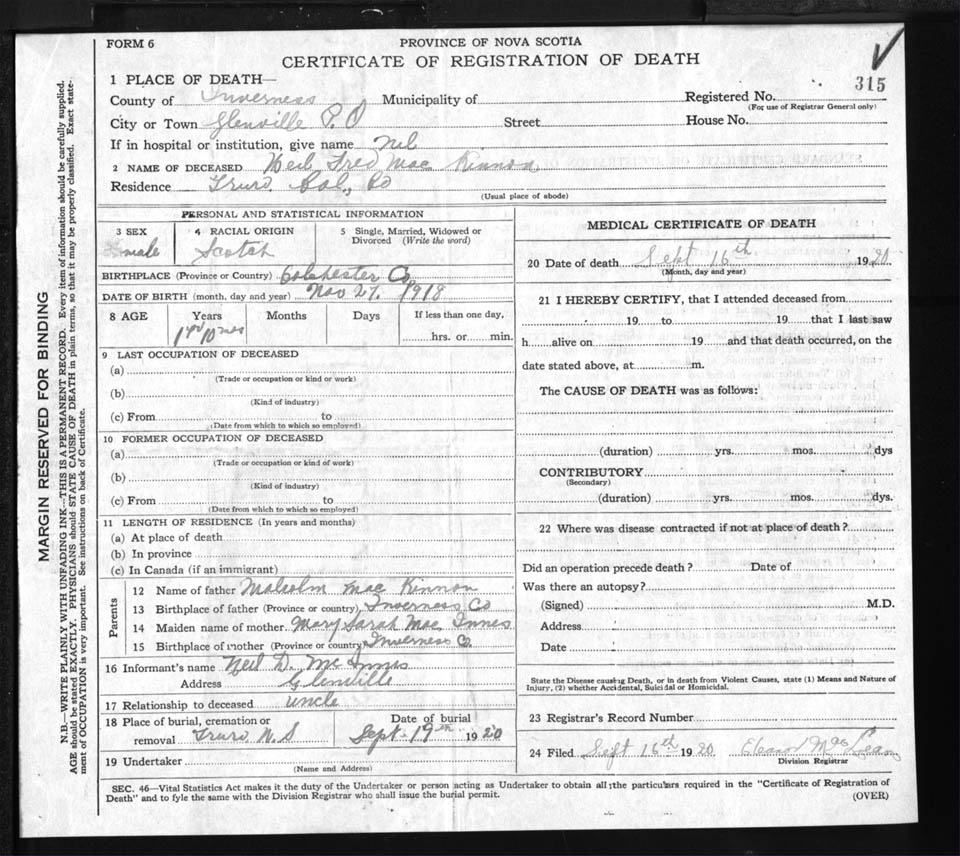 FORM 6
PROVINCE OF NOVA SCOTIA
CERTIFICATE OF REGISTRATION OF DEATH
1 PLACE OF DEATH—
County of Inverness Municipality of Registered No. 315
(For use of Registrar General only)
City or Town Glenville P. O Street House No.
If in hospital or institution, give name nil
2 NAME OF DECEASED Neil Fred Mac Kinnon
Residence Truro Col, Co
(Usual place of abode)
PERSONAL AND STATISTICAL INFORMATION
3 SEX
male
4 RACIAL ORIGIN
Scotch
5 Single, Married, Widowed or
Divorced (Write the word)
BIRTHPLACE (Province or Country) Colchester Co
DATE OF BIRTH (month, day and year) Nov 27. 1918
8 AGE Years Months Days If less than one day,
1 yr 10 mos
hrs. or min.
9 LAST OCCUPATION OF DECEASED
(a)
(Trade or occupation or kind or work)
(b)
(Kind of industry)
(c) From to
(Date from which to which so employed)
10 FORMER OCCUPATION OF DECEASED
(a)
(Trade or occupation or kind of work)
(b)
(Kind of industry)
(c) From to
(Date from which to which so employed)
11 LENGTH OF RESIDENCE (In years and months)
(a) At place of death
(b) In province
(c) In Canada (if an immigrant)
Parents
12 Name of father Malcolm Mac Kinnon
13 Birthplace of father (Province or country) Inverness Co
14 Maiden name of mother Mary Sarah Mac Innes
15 Birthplace of mother (Province or country) Inverness Co
16 Informant's name Neil D. Mc Innis
Address Glenville
17 Relationship to deceased uncle
18 Place of burial, cremation or
removal Truro N. S
Date of burial
Sept 19th 1920
19 Undertaker
(Name and Address)
MEDICAL CERTIFICATE OF DEATH
20 Date of death Sept 16th 1920
(Month, day and year)
21 I HEREBY CERTIFY, that I attended deceased from
19 to 19 that I last saw
h alive on 19 and that death occurred, on the
date stated above, at m.
The CAUSE OF DEATH was as follows:
(duration) yrs. mos. dys
CONTRIBUTORY
(Secondary)
(duration) yrs. mos. dys.
22 Where was disease contracted if not at place of death?
Did an operation precede death? Date of
Was there an autopsy?
(Signed) M.D.
Address
Date
State the Disease causing Death, or in death from Violent Causes, state (1) Means and Nature of
Injury, (2) whether Accidental, Suicidal or Homicidal.
23 Registrar's Record Number
24 Filed Sept 16th 1920
Division Registrar
SEC. 46—Vital Statistics Act makes it the duty of the Undertaker or person acting as Undertaker to obtain all the particulars required in the "Certificate of Registration of
Death" and to fyle the same with the Division Registrar who shall issue the burial permit.
(OVER)
MARGIN RESERVED FOR BINDING
N.B.—WRITE PLAINLY WITH UNFADING INK—THIS IS A PERMANENT RECORD. Every item of information should be carefully supplied.
AGE should be stated EXACTLY. PHYSICIANS should STATE CAUSE OF DEATH in plain terms, so that it may be properly classified. Exact state-
ment of OCCUPATION is very important. See instructions on back of Certificate.